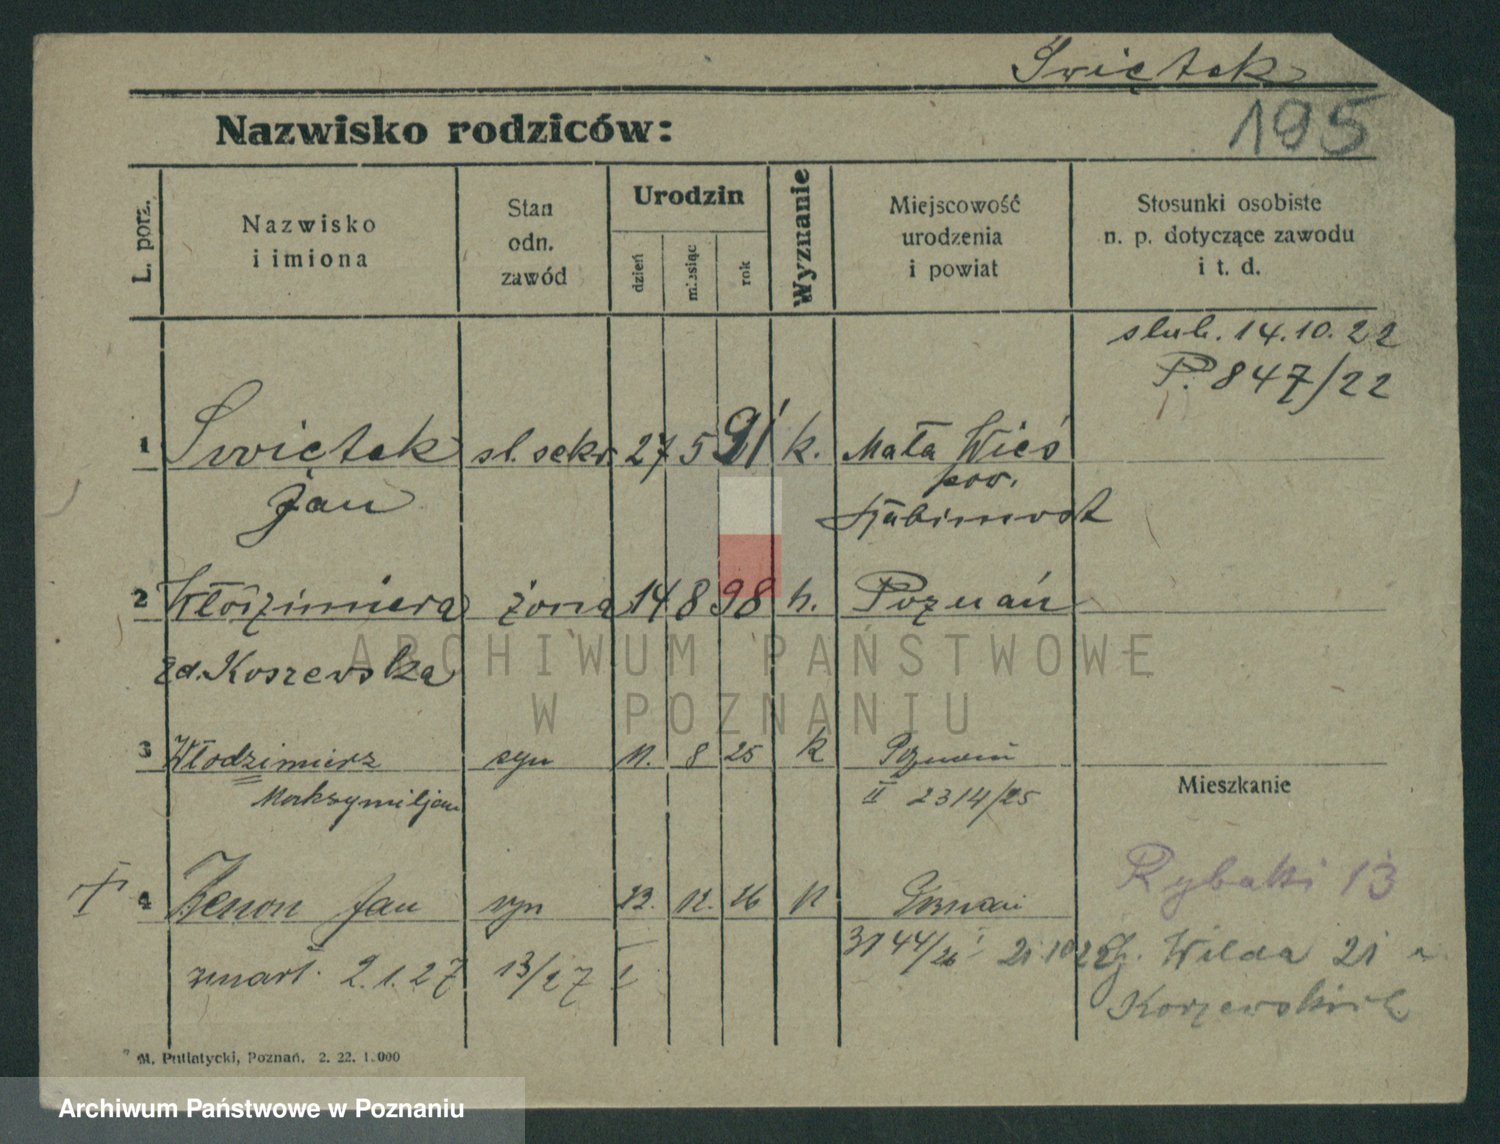 Świętek
195
Nazwisko rodziców:
L. porz.
Nazwisko
i imiona
Stan
odn.
zawód
Urodzin
dzień
miesiąc
rok
Wyznanie
Miejscowość
urodzenia
i powiat
Stosunki osobiste
n. p. dotyczące zawodu
i t. d.
slub. 14.10.22
P. 847/22
1 Świętek sl. sekr. 27 5 91 k. Mała Wieś
Jan pow.
Babimost
2 Włodzimiera żona 14 8 98 k. Poznań
zd. Koszewska
3 Włodzimierz syn 11. 8 25 k Poznań
Maksymiljan II 2314/25
Mieszkanie
Rybaki 13
4 Zenon Jan syn 23. 12. 26 k Poznań
zmarł 2.1.27 13/27 I
3144/26 I 21.10.22 G. Wilda 21
Koszewskich
M. Putiatycki, Poznań. 2. 22. 1.000
ARCHIWUM PAŃSTWOWE
W POZNANIU
Archiwum Państwowe w Poznaniu